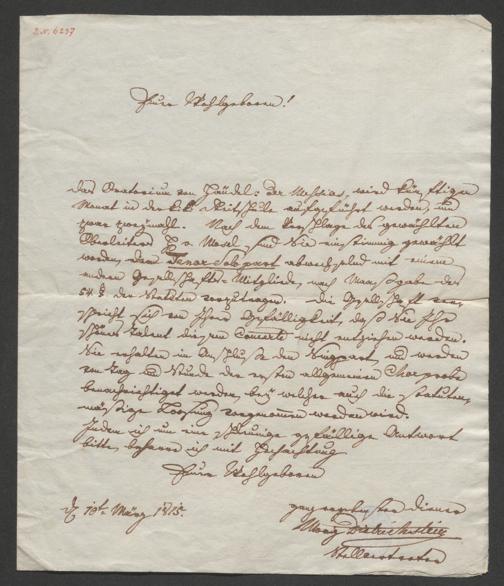 I.N. 6237
Euer Wohlgeboren!
Das Oratorium von Händel: der Messias, wird künftigen
Monat in der k.k. Reitschule aufgeführt werden, und
zwar zweymahl. Nach dem Vorschlage des gewählten
Oberleiters H. v. Mosel sind Sie einstimmig gewählt
worden, den Tenor Solo part abwechselnd mit einem
andern Gesellschafts-Mitgliede, nach Maasgabe des
§ der Statuten vorzutragen. Die Gesellschaft ver-
spricht sich von Ihrer Gefälligkeit, daß Sie Ihr
schönes Talent diesem Concerte nicht entziehen werden.
Sie erhalten im Anschluße den Singpart, und werden
von Tag und Stunde der ersten allgemeinen Chorprobe
benachrichtiget werden, bey welcher auch die statuten-
mässige Loosung vorgenommen werden wird.
Indem ich um eine schleunige gefällige Antwort
bitte, beharre ich mit Hochachtung
Euer Wohlgeboren
10t März 1815.
ganz ergebenster Diener
Moriz Dietrichstein
Stellvertreter